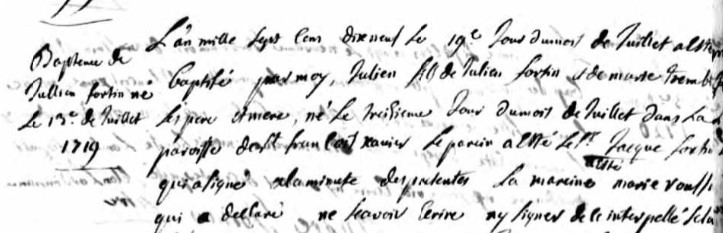 Bapteme de
Jullien fortin né
Le 13e de Juillet
1719
L'an mille sept cens dixneuf le 19e Jour dumois de Juillet a esté
baptisé par moy, Julien fils de Julien fortin et de marie Tremb
ses pere et mere, né Le treisieme Jour dumois de Juillet dans La
paroisse de st francois xavier Le parein a esté le Sr Jacque forti
qui a signé a la minute des presentes La mareine a esté marie
qui a declaré ne scavoir Ecrire ny signer de ce interpellé